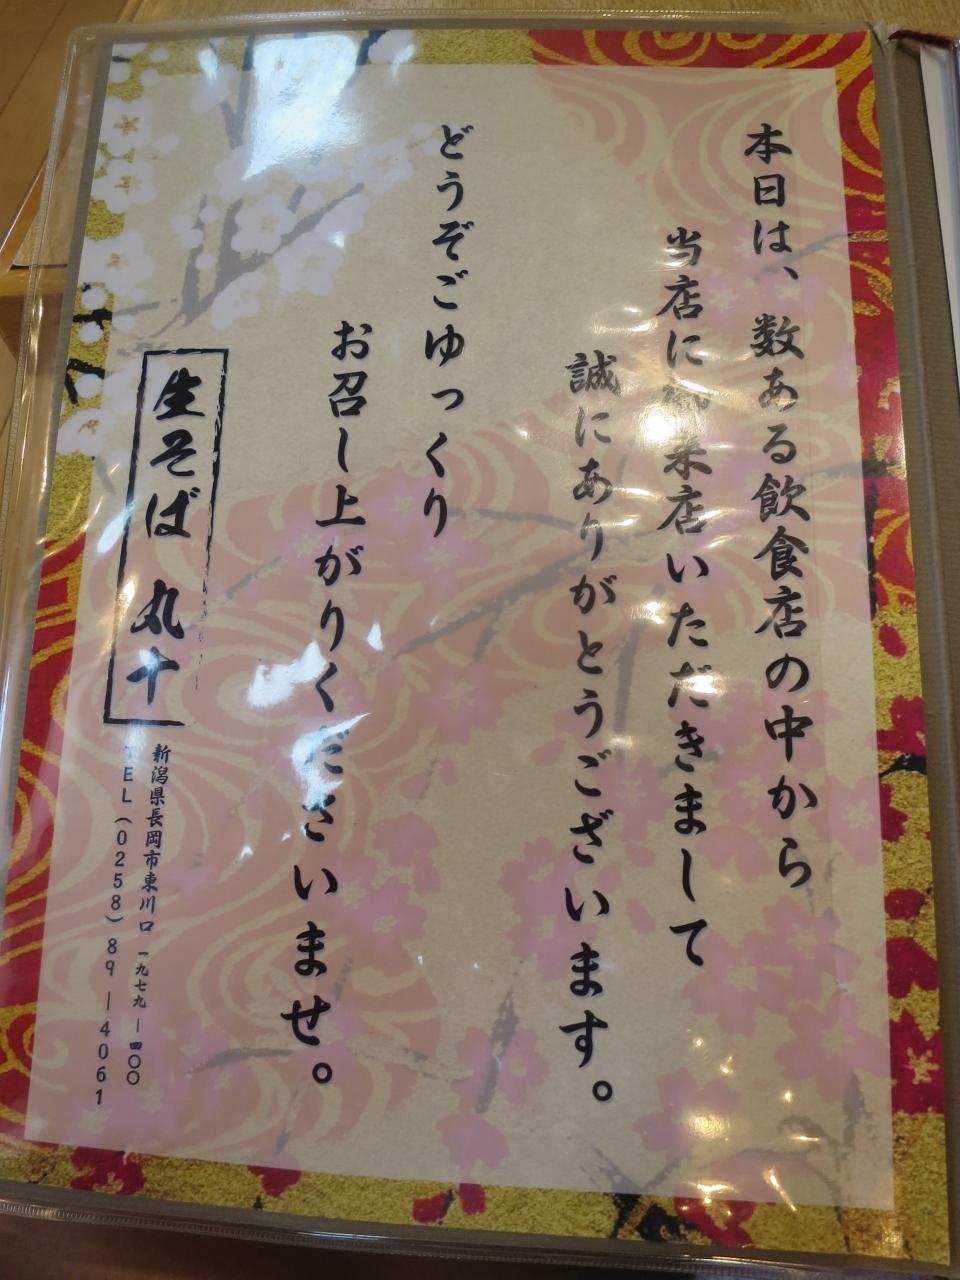 本日は、数ある飲食店の中から
当店に御来店いただきまして
誠にありがとうございます。
どうぞごゆっくり
お召し上がりくださいませ。
生そば 丸十
新潟県長岡市東川口 一九七九ー四〇〇
TEL(0258)89ー4061